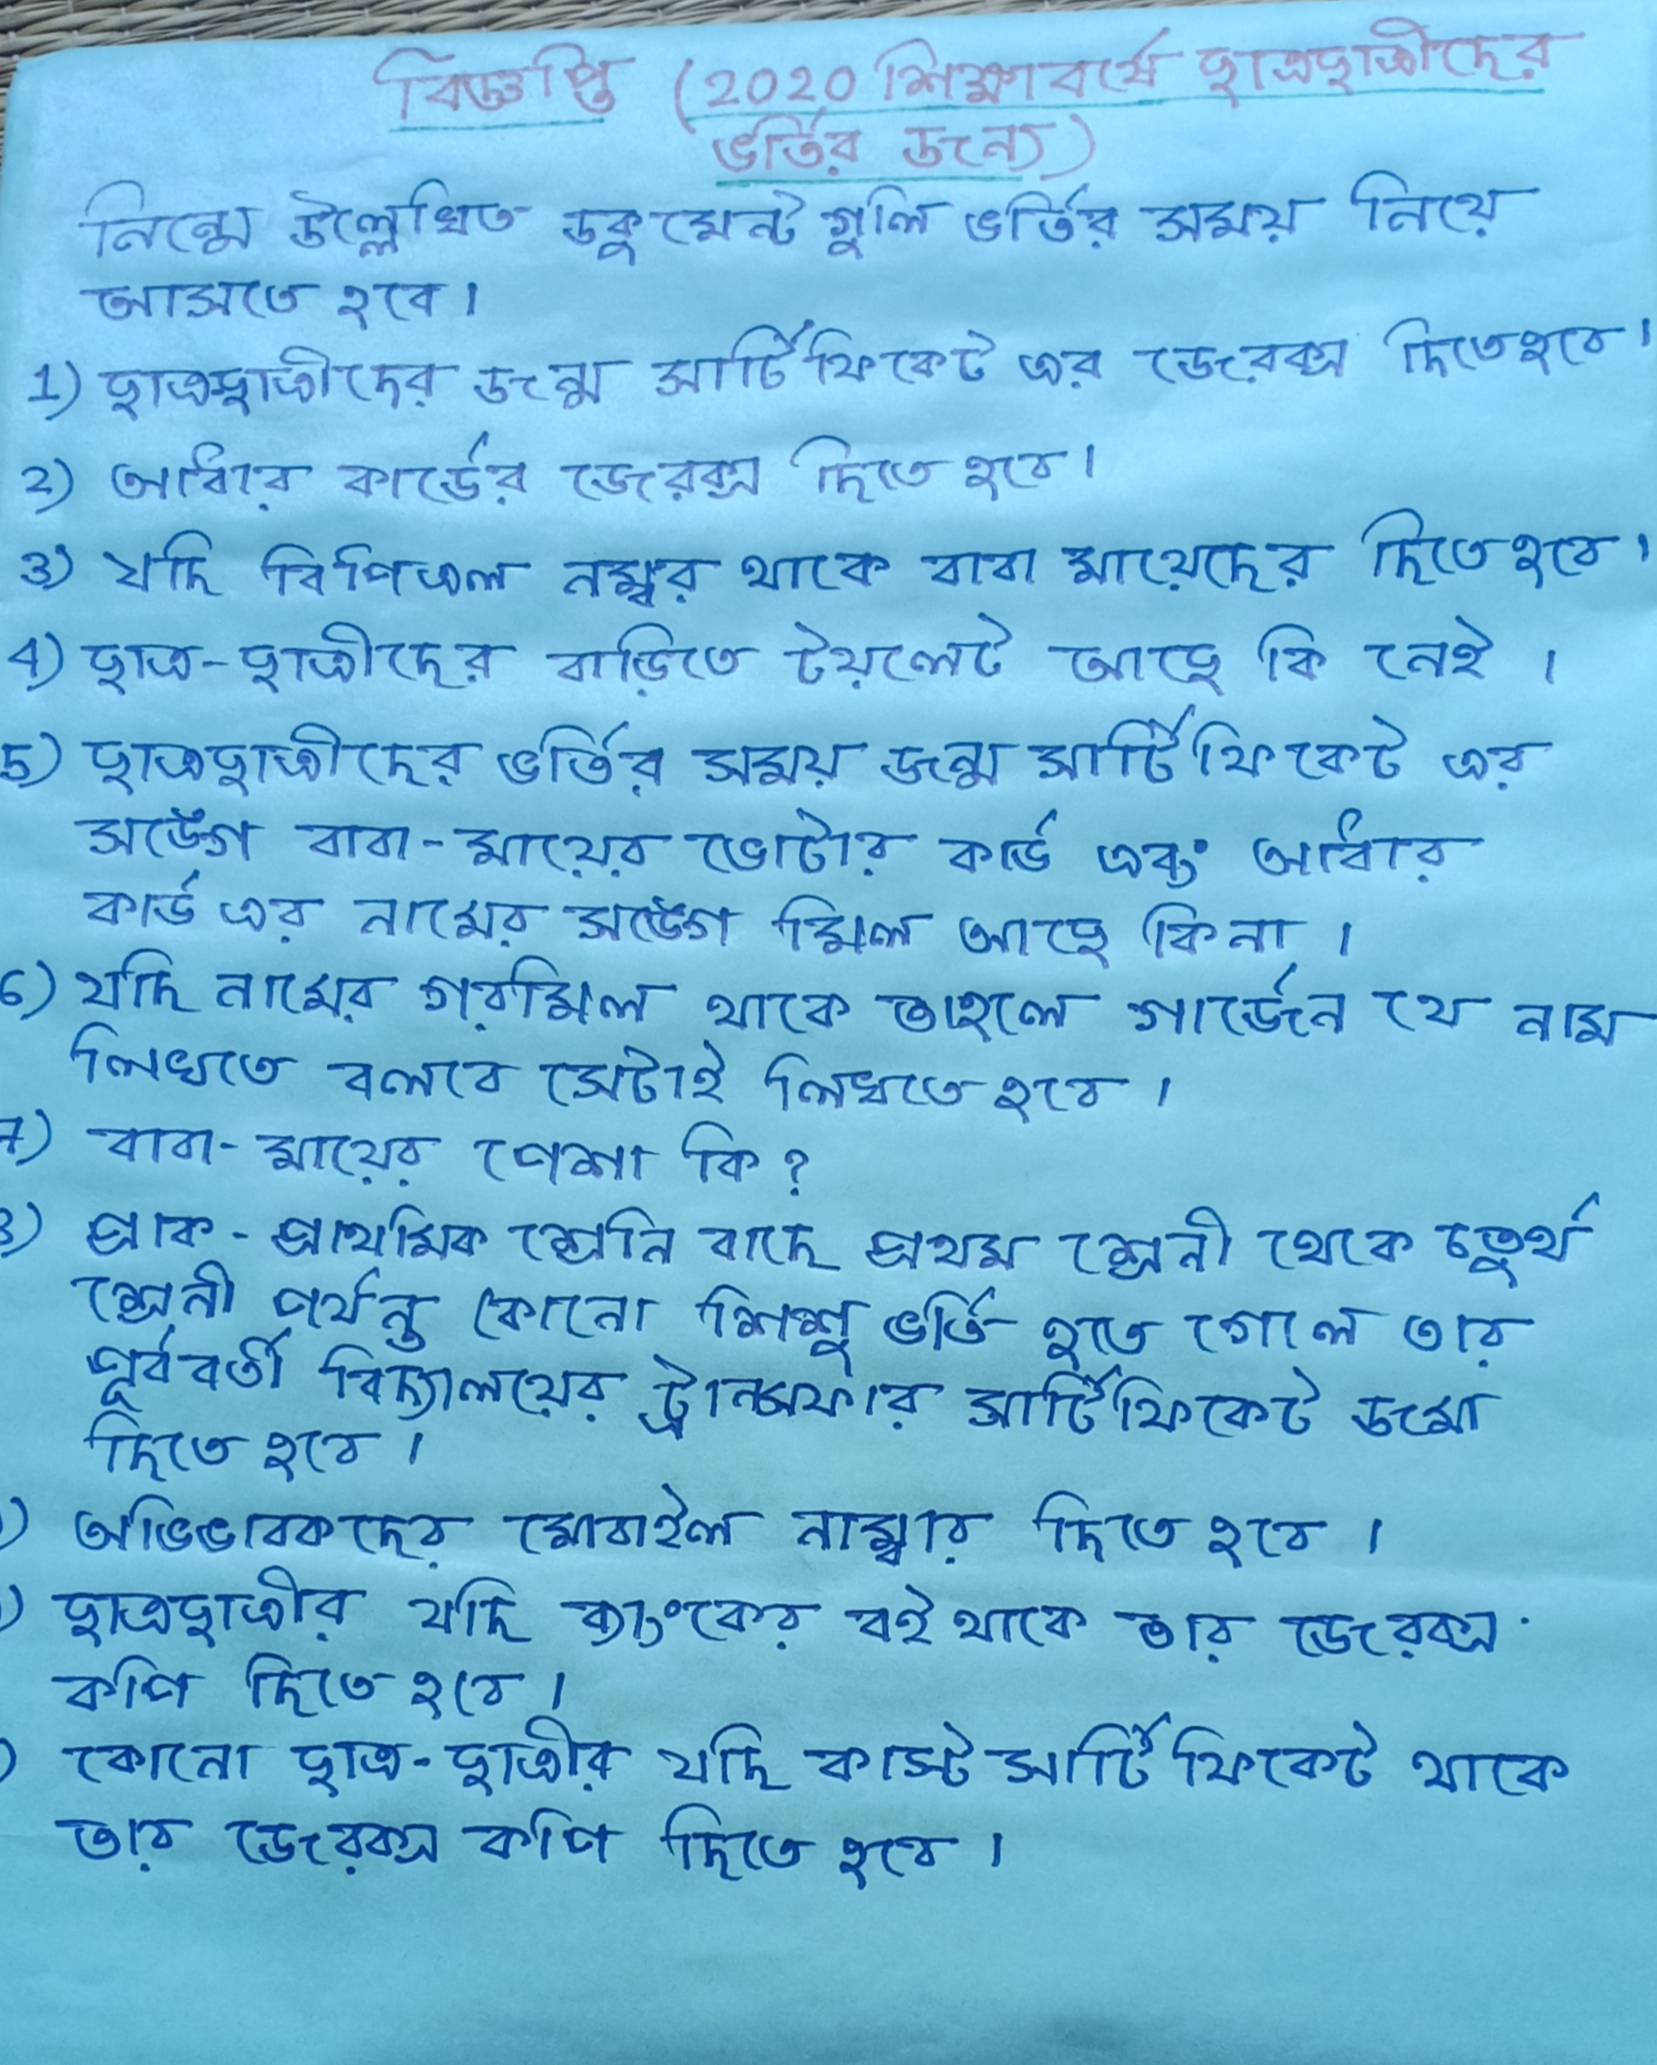 বিজ্ঞপ্তি (2020 শিক্ষাবর্ষে ছাত্রছাত্রীদের
ভর্তির জন্যে)
নিম্নে উল্লেখিত ডকুমেন্ট গুলি ভর্তির সময় নিয়ে
আসতে হবে।
1) ছাত্রছাত্রীদের জন্ম সার্টিফিকেট এর জেরক্স দিতে হবে।
2) আধার কার্ডের জেরক্স দিতে হবে।
3) যদি বিপিএল নম্বর থাকে বাবা মায়েদের দিতে হবে।
4) ছাত্র-ছাত্রীদের বাড়িতে টয়লেট আছে কি নেই।
5) ছাত্রছাত্রীদের ভর্তির সময় জন্ম সার্টিফিকেট এর
সঙ্গে বাবা-মায়ের ভোটার কার্ড এবং আধার
কার্ড এর নামের সঙ্গে মিল আছে কিনা।
6) যদি নামের গরমিল থাকে তাহলে গার্জেন যে নাম
লিখতে বলবে সেটাই লিখতে হবে।
7) বাবা-মায়ের পেশা কি?
8) প্রাক-প্রাথমিক শ্রেনি বাদে প্রথম শ্রেনী থেকে চতুর্থ
শ্রেনী পর্যন্ত কোনো শিশু ভর্তি হতে গেলে তার
পূর্ববর্তী বিদ্যালয়ের ট্রান্সফার সার্টিফিকেট জমা
দিতে হবে।
) অভিভাবকদের মোবাইল নাম্বার দিতে হবে।
) ছাত্রছাত্রীর যদি ব্যাংকের বই থাকে তার জেরক্স
কপি দিতে হবে।
) কোনো ছাত্র-ছাত্রীর যদি কাস্ট সার্টিফিকেট থাকে
তার জেরক্স কপি দিতে হবে।